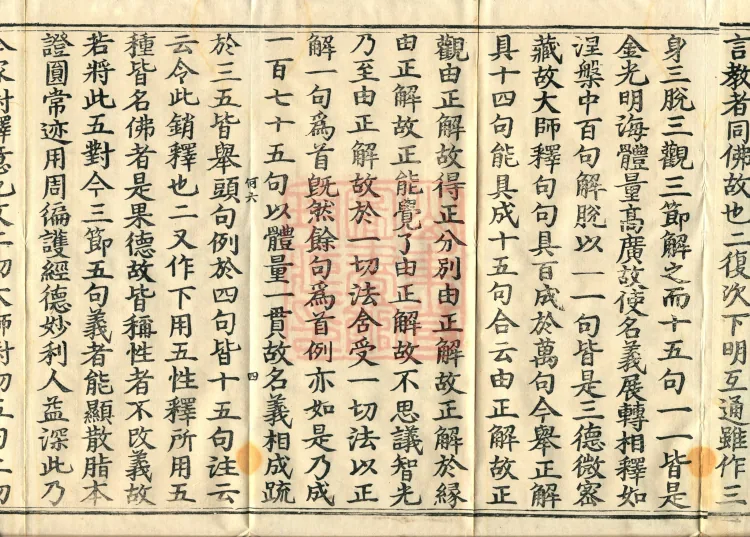 言教者同佛故也二復次下明互通雖作三
身三脫三觀三節解之而十五句一一皆是
金光明海體量高廣故使名義展轉相釋如
涅槃中百句解脫以一一句皆是三德微密
藏故大師釋句句具百成於萬句今舉正解
具十四句能具成十五句合云由正解故正
觀由正解故得正分別由正解故正解於緣
由正解故正能覺了由正解故不思議智光
乃至由正解故於一切法含受一切法以正
解一句爲首旣然餘句爲首例亦如是乃成
一百七十五句以體量一貫故名義相成䟽
何六
四
於三五皆舉頭句例於四句皆十五句注云
云令此銷釋也二又作下用五性釋所用五
種皆名佛者是果德故皆稱性者不改義故
若將此五對今三節五句義者能顯散脂本
證圓常迹用周徧護經德妙利人益深此乃